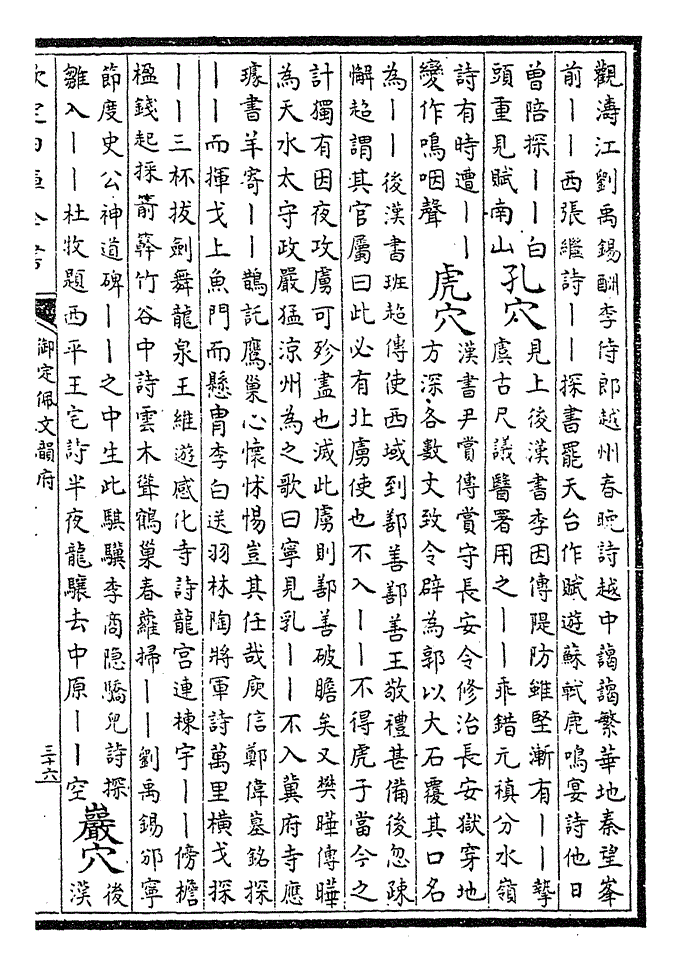 觀濤江劉禹錫酬李侍郎越州春晚詩越中藹藹繁華地秦望峯
前丨丨西張繼詩丨丨探書罷天台作賦遊蘇軾鹿鳴宴詩他日
曾陪探丨丨白
頭重見賦南山
孔穴
見上後漢書李因傳隄防雖堅漸有丨丨摯
虞古尺議醫署用之丨丨乖錯元稹分水嶺
詩有時遭丨丨
變作鳴咽聲
虎穴
漢書尹賞傳賞守長安令修治長安獄穿地
方深各數丈致令辟為郭以大石覆其口名
為丨丨後漢書班超傳使西域到鄯善鄯善王敬禮甚備後忽疎
懈超謂其官屬曰此必有北虜使也不入丨丨不得虎子當今之
計獨有因夜攻虜可殄盡也滅此虜則鄯善破膽矣又樊曄傳曄
為天水太守政嚴猛涼州為之歌曰寧見乳丨丨不入冀府寺應
璩書羊寄丨丨鵲託鷹巢心懷怵惕豈其任哉庾信鄭偉墓銘探
丨丨而揮戈上魚門而懸胄李白送羽林陶將軍詩萬里橫戈探
丨丨三杯拔劍舞龍泉王維遊感化寺詩龍宮連棟宇丨丨傍檐
楹錢起採箭簳竹谷中詩雲木聳鶴巢春蘿掃丨丨劉禹錫邠寧
節度史公神道碑丨丨之中生此騏驥李商隱驕兒詩探
雛入丨丨杜牧題西平王宅詩半夜龍驤去中原丨丨空
巖穴
後
漢
欽定四庫全書
御定佩文韻府
三十六